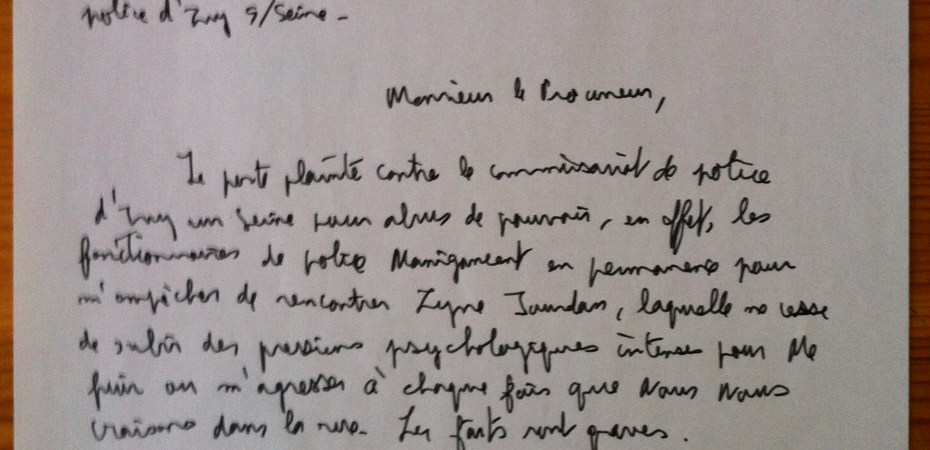 police d'Ivry S/Seine -
Monsieur le Procureur,
Je porte plainte contre le commissariat de police
d'Ivry sur Seine pour abus de pouvoir, en effet, les
fonctionnaires de police Manigancent en permanence pour
m'empêcher de rencontrer Jourdan, laquelle ne cesse
de subir des pressions psychologiques intenses pour Me
fuir ou m'agresser à chaque fois que Nous Nous
croisons dans la rue. Les faits sont graves.